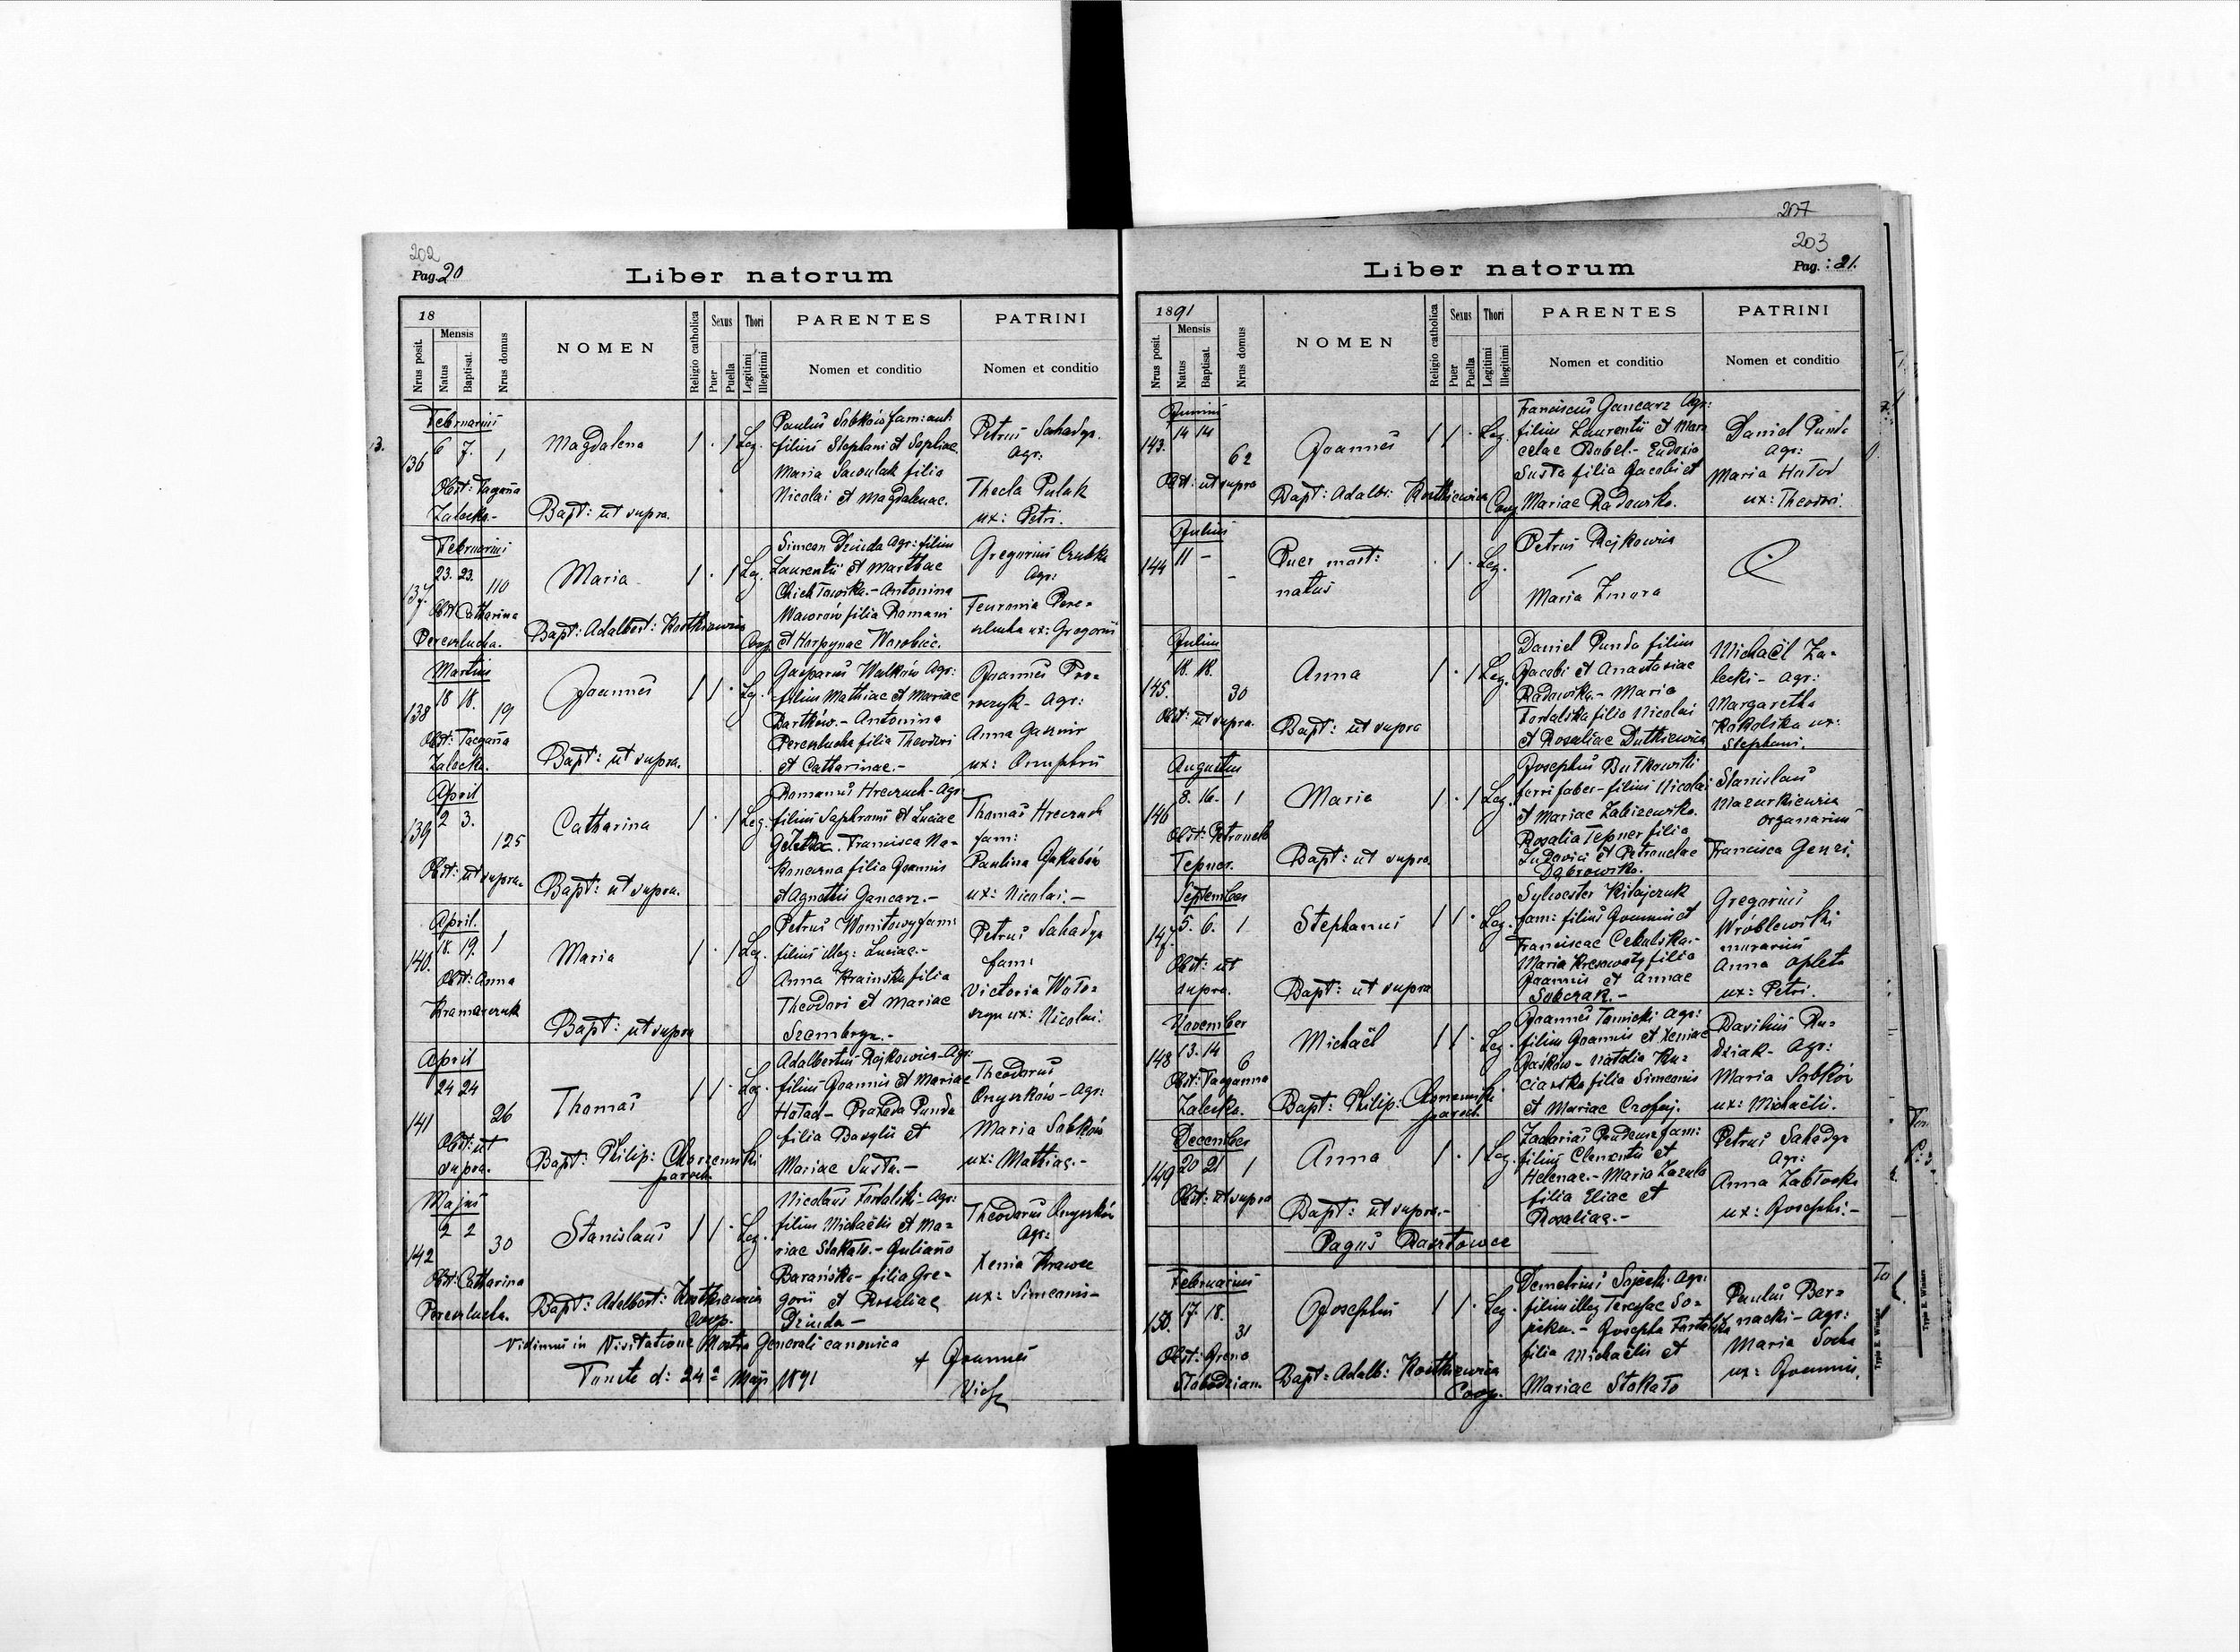 202
Pag. 20
Liber natorum
18
Mensis
Nrus posit.
Natus
Baptisat.
Nrus domus
NOMEN
Religio catholica
Sexus
Puer
Puella
Thori
Legitimi
Illegitimi
PARENTES
Nomen et conditio
PATRINI
Nomen et conditio
Februarius
136 6 7. 1
Magdalena
1 . 1 Leg.
Obst: Tacyana
Zalecka.-
Bapt: ut supra.
Paulus Sobków fam:
filius Stephani et Sophiae
Maria filia
Nicolai et Magdalenae.
Petrus Sahadyn
Agr:
Thecla Pulak
ux: Petri.
Februarius
137 23. 23. 110
Maria
1 . 1 Leg.
Obst: Catharina
Pereszlucha.
Bapt: Adalbert: Kostkiewicz
Coop.
Simeon Dziuda Agr: filius
Laurentii et Marthae
Antonina
filia Romani
et Harpynae Worobiec.
Gregorius
Agr:
Feuronia Pere=
szlucha ux: Gregorii
Martius
138 18 18. 19
Joannes
1 1 . Leg.
Obst: Tacyana
Zalecka.
Bapt: ut supra.
Gasparus Walków Agr:
filius Mathiae et Mariae
Bartków.- Antonina
Pereszlucha filia Theodori
et Catharinae.-
Joannes
Agr:
Anna
ux: Onuphrii
April
139 2 3. 125
Catharina
1 . 1 Leg.
Obst: ut supra.
Bapt: ut supra.
Romanus Hreczuch- Agr:
filius Saphronii et Luciae
Francisca Na=
koneczna filia Joannis
et Agnetis Gancarz.-
Thomas Hreczuch
fam:
Paulina Jakubów
ux: Nicolai.-
April.
140. 18. 19. 1
Maria
1 . 1 Leg.
Obst: Anna
Kramarczuk
Bapt: ut supra
Petrus Wonitowy fam:
filius illeg: Luciae.-
Anna Krainska filia
Theodori et Mariae
Szembryn.-
Petrus Sahadyn
fam:
Victoria Woto=
szyn ux: Nicolai.
April
141 24 24 26
Thomas
1 1 . Leg.
Obst: ut
supra.
Bapt: Philip: Chorzemski
paroch.
Adalbertus Rojkowicz- Agr:
filius Joannis et Mariae
Hatad- Praxeda Punda
filia Basylii et
Mariae Susta.-
Theodorus
Onyszków- Agr:
Maria Sobków
ux: Mathiae.-
Majus
142 2 2 30
Stanislaus
1 1 . Leg.
Obst: Catharina
Pereszlucha.
Bapt: Adalbert: Kostkiewicz
Coop.
Nicolaus Fortalski- Agr:
filius Michaëlis et Ma=
riae Stokato.- Juliana
Baranska- filia Gre=
gorii et Rosaliae
Dziuda-
Theodorus Onyszków
Agr:
Xenia Krawec
ux: Simeonis-
Vidimus in Visitatione Nostra Generali canonica
d: 24ª Maji 1891
+ Joannes
207
203
Pag.: 21.
Liber natorum
1891
Mensis
Nrus posit.
Natus
Baptisat.
Nrus domus
NOMEN
Religio catholica
Sexus
Puer
Puella
Thori
Legitimi
Illegitimi
PARENTES
Nomen et conditio
PATRINI
Nomen et conditio
Junius
143. 14 14 62
Joannes
1 1 . Leg.
Obst: ut supra
Bapt: Adalb: Kostkiewicz
Coop.
Franciscus Gancarz Agr:
filius Laurentii et Mar=
celae Babel.- Eudoxia
Susta filia Jacobi et
Mariae Radowska.
Daniel Punda
Agr:
Maria Hatad
ux: Theodori.
Julius
144 11 - -
Puer mort:
natus
. 1 . Leg.
Petrus Rojkowicz
Maria Zmora
Julius
145. 18. 18. 30
Anna
1 . 1 Leg.
Obst: ut supra.
Bapt: ut supra
Daniel Punda filius
Jacobi et Anastasiae
Radowska.- Maria
Fortalska filia Nicolai
et Rosaliae Dutkiewicz
Michaël Za=
lecki- Agr:
Margaretha
Rokolska ux:
Stephani.
Augustus
146 8. 16. 1
Maria
1 . 1 Leg.
Obst: Petronela
Tepner.
Bapt: ut supra
Josephus Butkowski
ferrifaber- filius Nicolai
et Mariae
Rosalia Tepner filia
Ludovici et Petronelae
Dąbrowska.
Stanislaus
Mazurkiewicz
organarius
Francisca
September
147. 5. 6. 1
Stephanus
1 1 . Leg.
Obst: ut
supra.
Bapt: ut supra
Sylvester Kitajczuk
fam: filius Joannis et
Franciscae Cekalska.-
Maria filia
Joannis et Annae
Sobczak.-
Gregorius
Wróblewski
murarius
Anna Opleta
ux: Petri.
November
148 13. 14 6
Michaël
1 1 . Leg.
Obst: Tacyanna
Zalecka.
Bapt: Philip: Chorzemski
paroch.
Joannes Tarnicki Agr:
filius Joannis et Xeniae
Natalia Ku=
ciarska filia Simeonis
et Mariae
Basilius Ru=
dziak- Agr:
Maria Sobków
ux: Michaëlis.
December
149 20 21 1
Anna
1 . 1 Leg.
Obst: ut supra
Bapt: ut supra.-
Zacharias Prudeus fam:
filius Clementis et
Helenae.- Maria Zazula
filia Eliae et
Rosaliae.-
Petrus Sahadyn
Agr:
Anna Zabłocka
ux: Josephi.-
Pagus Basztowce
Februarius
150. 17. 18. 31
Josephus
1 1 . Leg.
Obst: Irena
Slobodzian.
Bapt: Adalb: Kostkiewicz
Coop.
Demetrius Agr:
filius illeg Teresae So=
Josepha Fortalska
filia Michaëlis et
Mariae Stokato
Paulus Ber=
nacki- Agr:
Maria Socha
ux: Joannis.